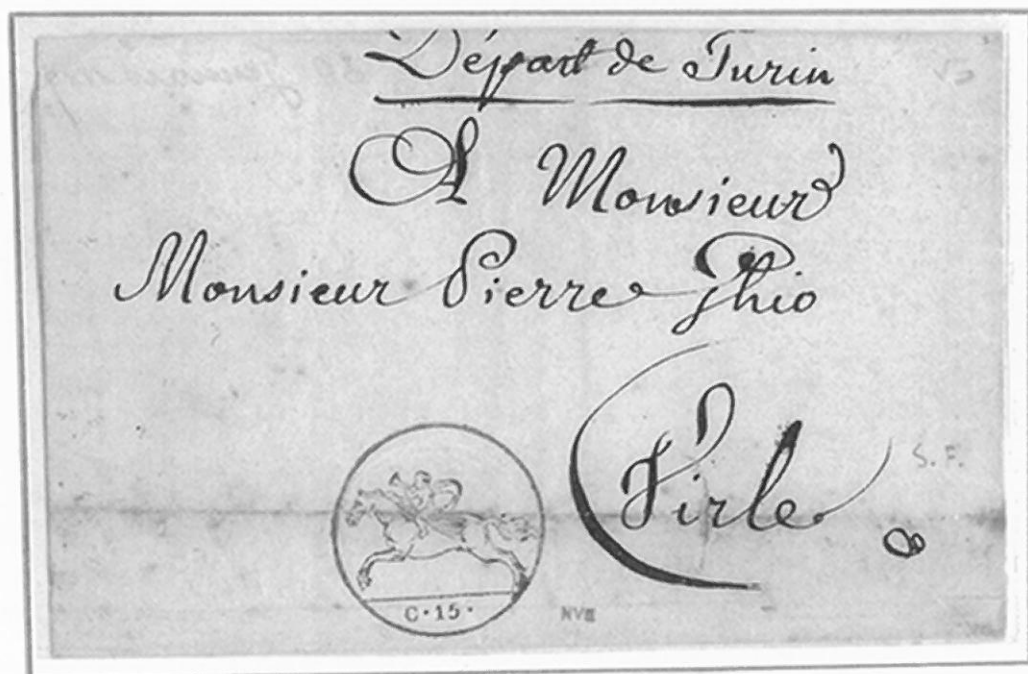 Départ de Turin
A Monsieur
Monsieur Pierre Ghio
Virle
S. F.
C·15·